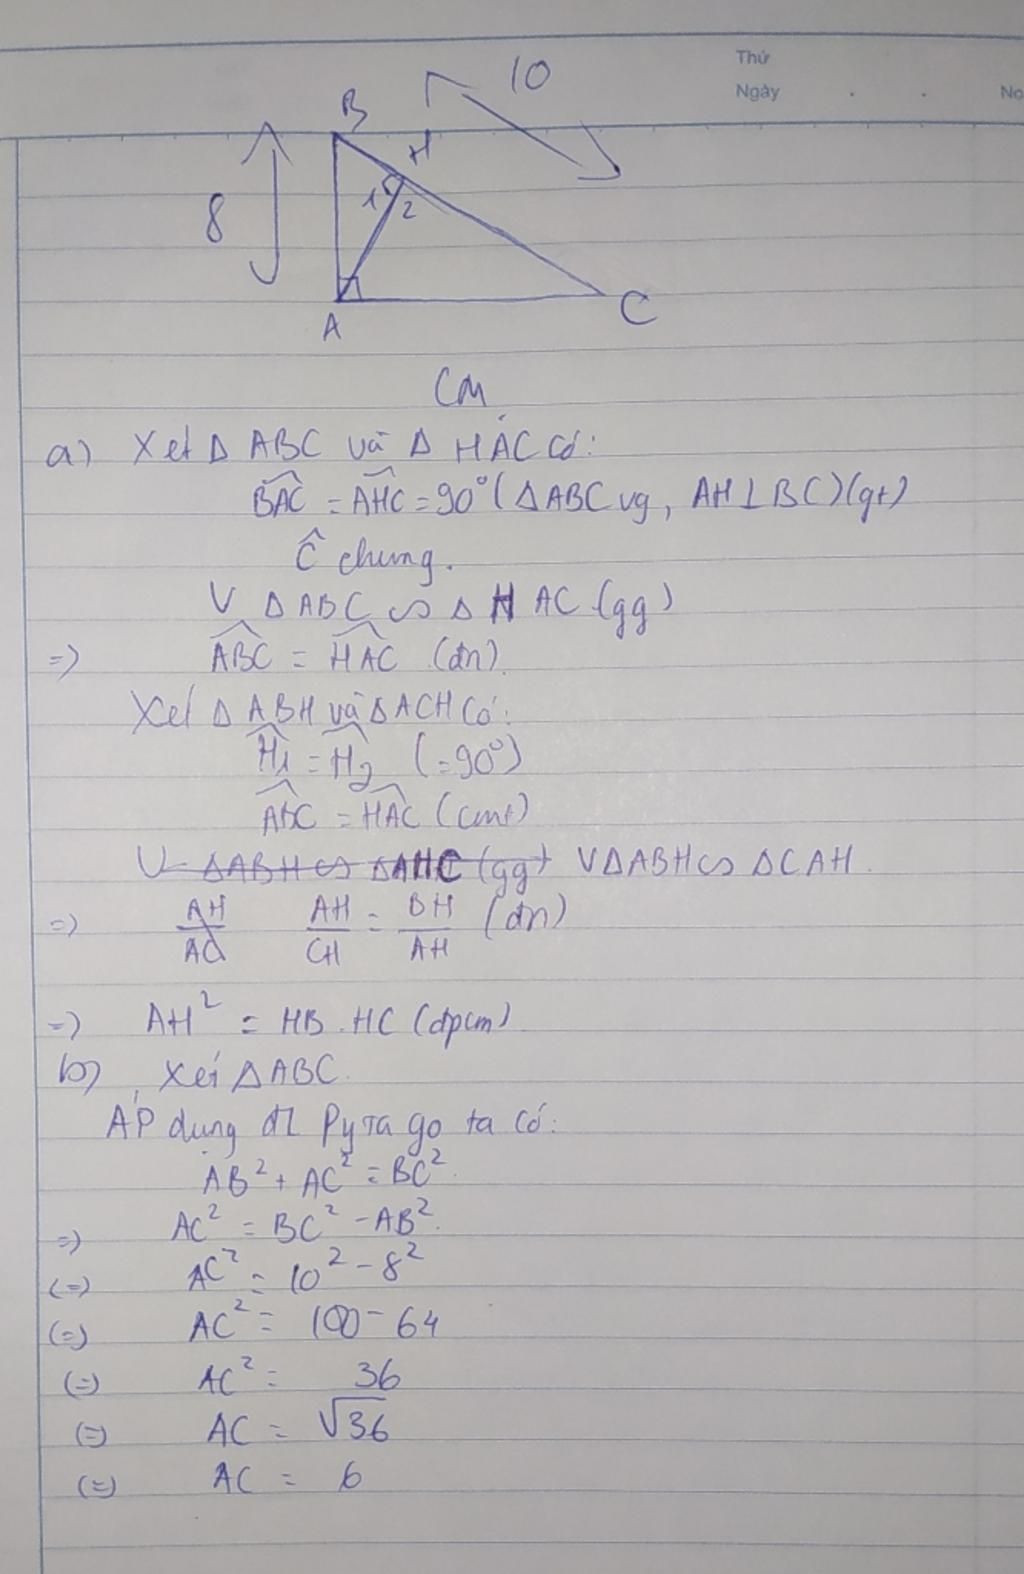 Thứ
Ngày . . No
10
B
H
8
1 2
A
C
CM
a) Xét Δ ABC và Δ HAC có:
BAC = AHC = 90° (ΔABC vg, AH⊥BC)(gt)
Ĉ chung.
V ΔABC ∽ Δ HAC (gg)
=) ABC = HAC (đn)
Xét Δ ABH và Δ ACH có:
H1 = H2 (=90°)
ABC = HAC (cmt)
V ΔABH ∽ ΔAHC (gg) VΔABH ∽ ΔCAH.
=) AH/AC AH/CH = BH/AH (đn)
=) AH² = HB . HC (đpcm)
b) Xét ΔABC.
ÁP dụng đl Pytago ta có:
AB² + AC² = BC²
=) AC² = BC² - AB².
(=) AC² = 10² - 8²
(=) AC² = 100 - 64
(=) AC² = 36
(=) AC = √36
(=) AC = 6